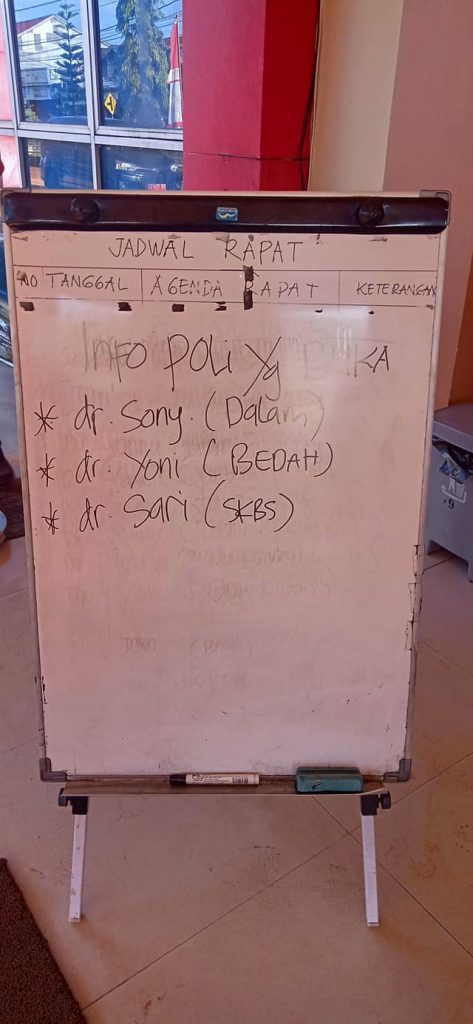 JADWAL RAPAT
NO TANGGAL AGENDA RAPAT KETERANGAN
INFO POLI Yg BUKA
* dr. Sony. (Dalam)
* dr. Yoni (BEDAH)
* dr. Sari (SKBS)